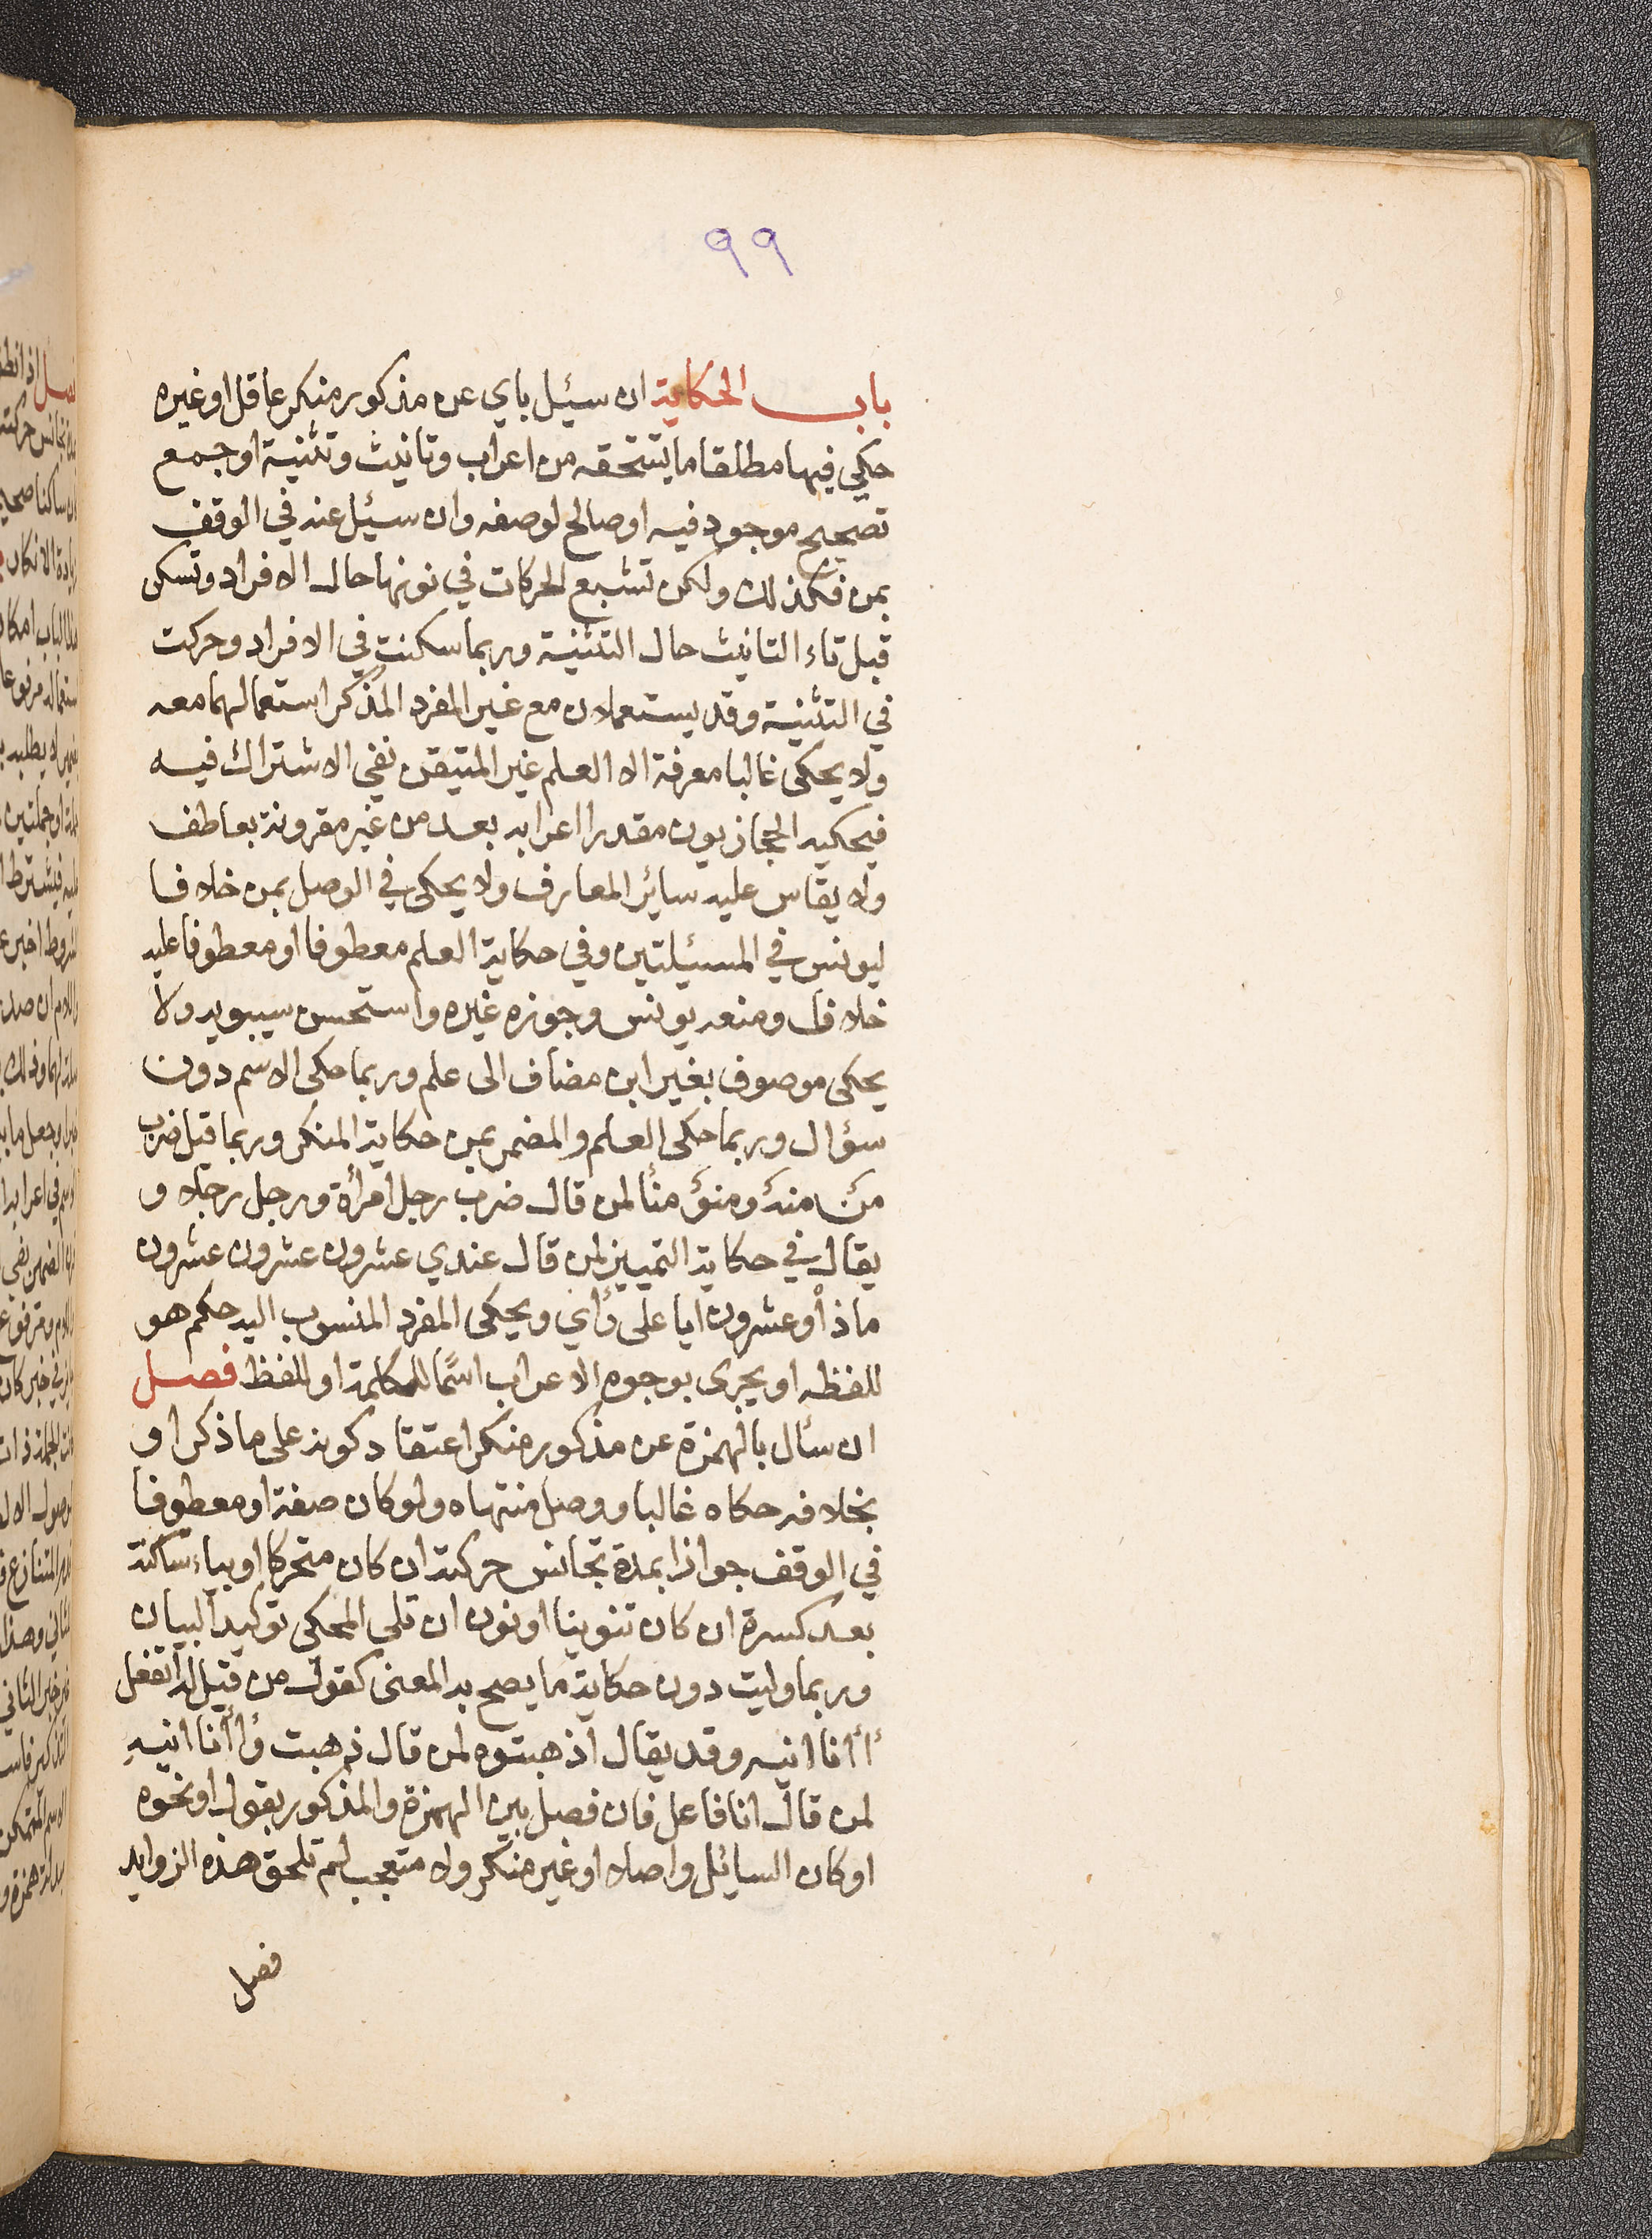 ٩٩
باب الحكاية ان سئيل باي عن مذكور منكر عاقل او غيره
حكي فيها مطلقا ما يستحقه من اعراب وتانيث وتثنية او جمع
تصحيح موجود فيه او صالح لوصفه وان سئيل عنه في الوقف
بمن فكذلك ولكن تشبع الحركات في نونها حال الافراد وتسكن
قبل تاء التانيث حال التثنية وربما سكنت في الافراد وحركت
في التثنية وقد يستعملان مع غير المفرد المذكر استعمالهما معه
ولا يحكى غالبا معرفة الا العلم غير المتيقن نفي الاشتراك فيه
فيحكيه الحجازيون مقدرا اعرابه بعد من غير مقرونة بعاطف
ولا يقاس عليه سائر المعارف ولا يحكى في الوصل بمن خلافا
ليونس في المسئيلتين وفي حكاية العلم معطوفا او معطوفا عليه
خلاف ومنعه يونس وجوزه غيره واستحسن سيبويه ولا
يحكى موصوف بغير ابن مضاف الى علم وربما حكى الاسم دون
سؤال وربما حكى العلم والمضمر بمن حكاية المنكر وربما قيل ضرب
من منه ومنو منا لمن قال ضرب رجل امرأة ورجل رجلا و
يقال في حكاية التمييز لمن قال عندي عشرون عشرون عشرون
ماذا وعشرون ايا على رأي ويحكى المفرد المنسوب اليه حكم هو
للفظه او يجرى بوجوه الاعراب اسمًا للكلمة او للفظ فصل
ان سئال بالهمزة عن مذكور منكر اعتقاد كونه على ما ذكر او
بخلافه حكاه غالبا ووصل منتهاه ولو كان صفة او معطوفا
في الوقف جوازا بمدة تجانس حركته ان كان متحركا او بياء ساكنة
بعد كسرة ان كان تنوينا او نون ان تلي المحكي توكيدا لبيان
وربما وليت دون حكاية ما يصح به المعنى كقول من قيل له اتفعل
أأنا انيه وقد يقال اذهبتوه لمن قال ذهبت وأأنا انيه
لمن قال انا فاعل فان فصل بين الهمزة والمذكور بقول او نحوه
او كان السائل واصلا او غير منكر ولا متعجب لم تلحق هذه الزوايد
فصل